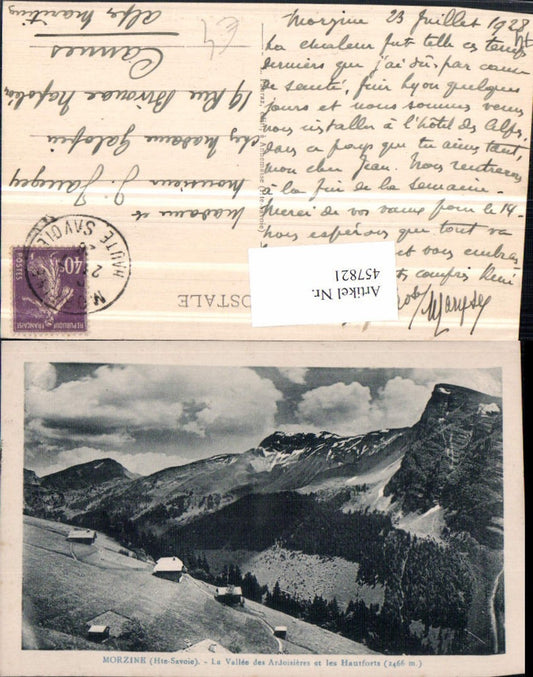 Morzine 23 Juillet 1928
La chaleur fut telle ces temps
derniers que j'ai dû, par cause
de santé, fuir Lyon quelques
jours et nous sommes venus
nous installer à l'hôtel des Alpes,
dans ce pays que tu aimes tant,
mon cher Jean. Nous rentrerons
à la fin de la semaine.
Merci de vos vœux pour le 14.
Nous espérons que tout va
vous embras
compris
Madame et
Monsieur J.
chez Madame
19 Rue
Cannes
Alpes Maritimes
HAUTE SAVOIE
40c
REPUBLIQUE FRANÇAISE
POSTALE
Artikel Nr.
457821
MORZINE (Hte-Savoie). - La Vallée des Ardoisières et les Hautforts (2466 m.)